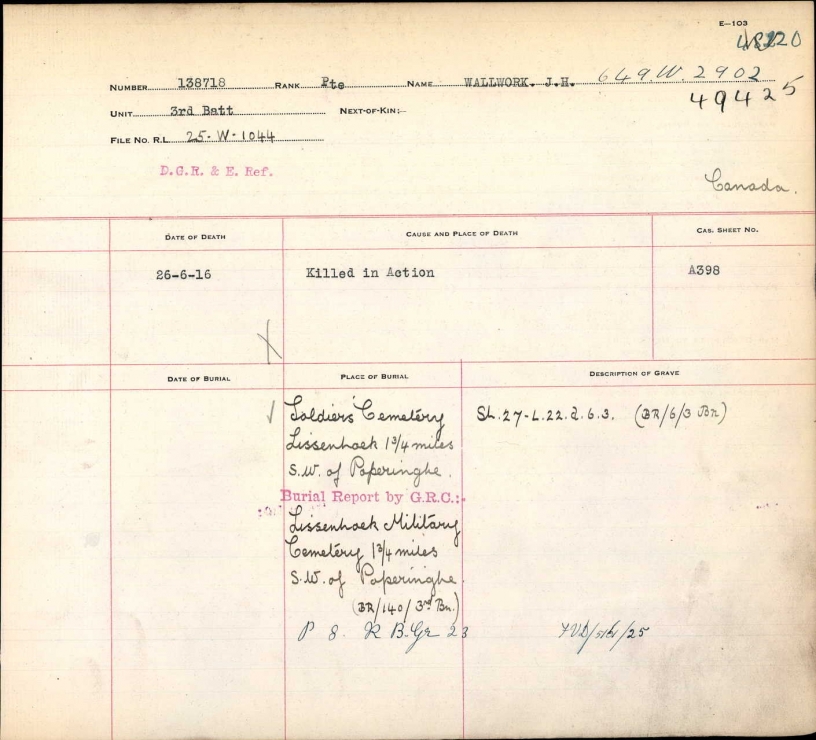 E-103
NUMBER 138718 RANK Pte NAME WALLWORK. J.H. 649.W.2902
49425
UNIT 3rd Batt NEXT-OF-KIN:-
FILE No. R.L. 25-W-1044
D.G.R. & E. Ref.
Canada.
DATE OF DEATH CAUSE AND PLACE OF DEATH CAS. SHEET No.
26-6-16 Killed in Action A398
DATE OF BURIAL PLACE OF BURIAL DESCRIPTION OF GRAVE
Soldiers' Cemetery Sh.27-L.22.d.6.3. (BR/6/3 Bn)
Lissenhoek 1 3/4 miles
S.W. of Poperinghe.
Burial Report by G.R.C.:-
Lissenhoek Military
Cemetery 1 3/4 miles
S.W. of Poperinghe.
(BR/140/3rd Bn.)
P 8. R B. Gr 23